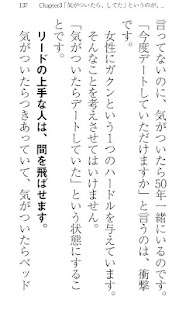 137　Chapter3「気がついたら、してた」というのが、…
言ってないのに、気がついたら50年一緒にいるのです。
「今度デートしていただけますか」と言うのは、衝撃
です。
女性にガクンという1つのハードルを与えています。
そんなことを考えさせてはいけません。
「気がついたらデートしていた」という状態にするこ
とです。
リードの上手な人は、間を飛ばせます。
気がついたらつきあっていて、気がついたらベッド